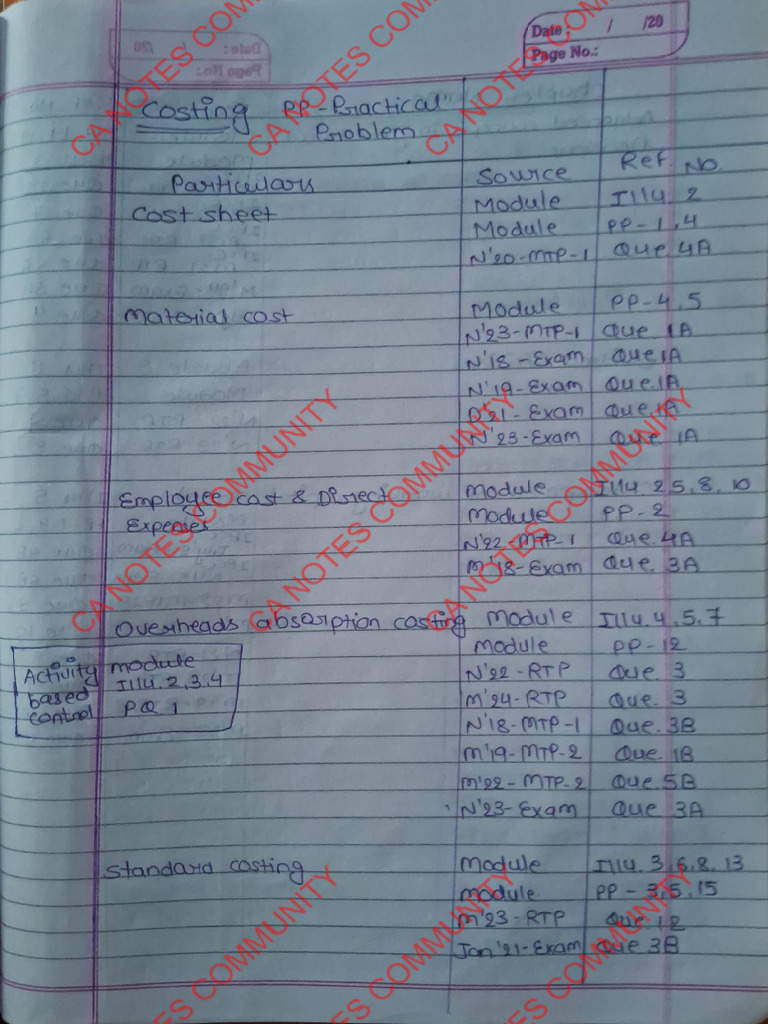 Date: / /20
Page No.:
Costing PP-Practical
Problem
Particulars Source Ref. No.
Cost sheet Module Illu. 2
Module PP-1,4
N'20-MTP-1 Que 4A
Material cost Module PP-4,5
N'23-MTP-1 Que 1A
N'18-Exam Que 1A
N'19-Exam Que 1A
D'21-Exam Que 1A
N'23-Exam Que 1A
Employee cost & Direct Module Illu. 2,5,8,10
Expenses Module PP-2
N'22-MTP-1 Que. 4A
M'18-Exam Que. 3A
Overheads absorption costing Module Illu. 4,5,7
Module PP-12
Activity module
based Illu. 2,3,4
control PQ 1
N'22-RTP Que. 3
M'24-RTP Que. 3
N'18-MTP-1 Que. 3B
M'19-MTP-2 Que 1B
M'22-MTP-2 Que 5B
N'23-Exam Que 3A
Standard costing Module Illu. 3,6,8,13
Module PP-3,5,15
M'23-RTP Que 12
Jan'21-Exam Que 3B
CA NOTES COMMUNITY
CA NOTES COMMUNITY
CA NOTES COMMUNITY
CA NOTES COMMUNITY
CA NOTES COMMUNITY
CA NOTES COMMUNITY
CA NOTES COMMUNITY
CA NOTES COMMUNITY
CA NOTES COMMUNITY